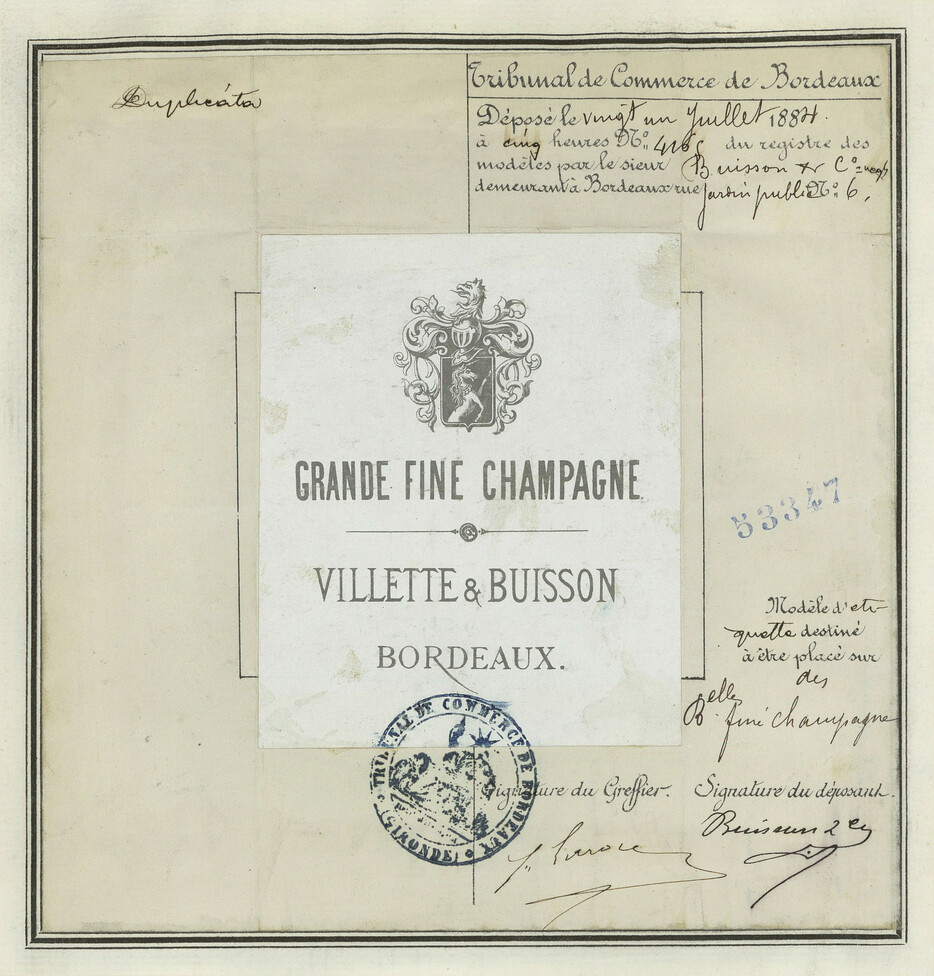 Duplicáta
Tribunal de Commerce de Bordeaux
Déposé le vingt un Juillet 1884.
à cinq heures Nº. du registre des
modèles par le sieur Buisson & Cº
demeurant à Bordeaux rue Jardin public Nº. 6,
GRANDE FINE CHAMPAGNE
VILLETTE & BUISSON
BORDEAUX.
53347
Modèle d'eti-
quette destiné
à être placé sur
des
Blles finé champagne
TRIBUNAL DE COMMERCE DE BORDEAUX
(GIRONDE)
Signature du Greffier. Signature du déposant.
Buisson